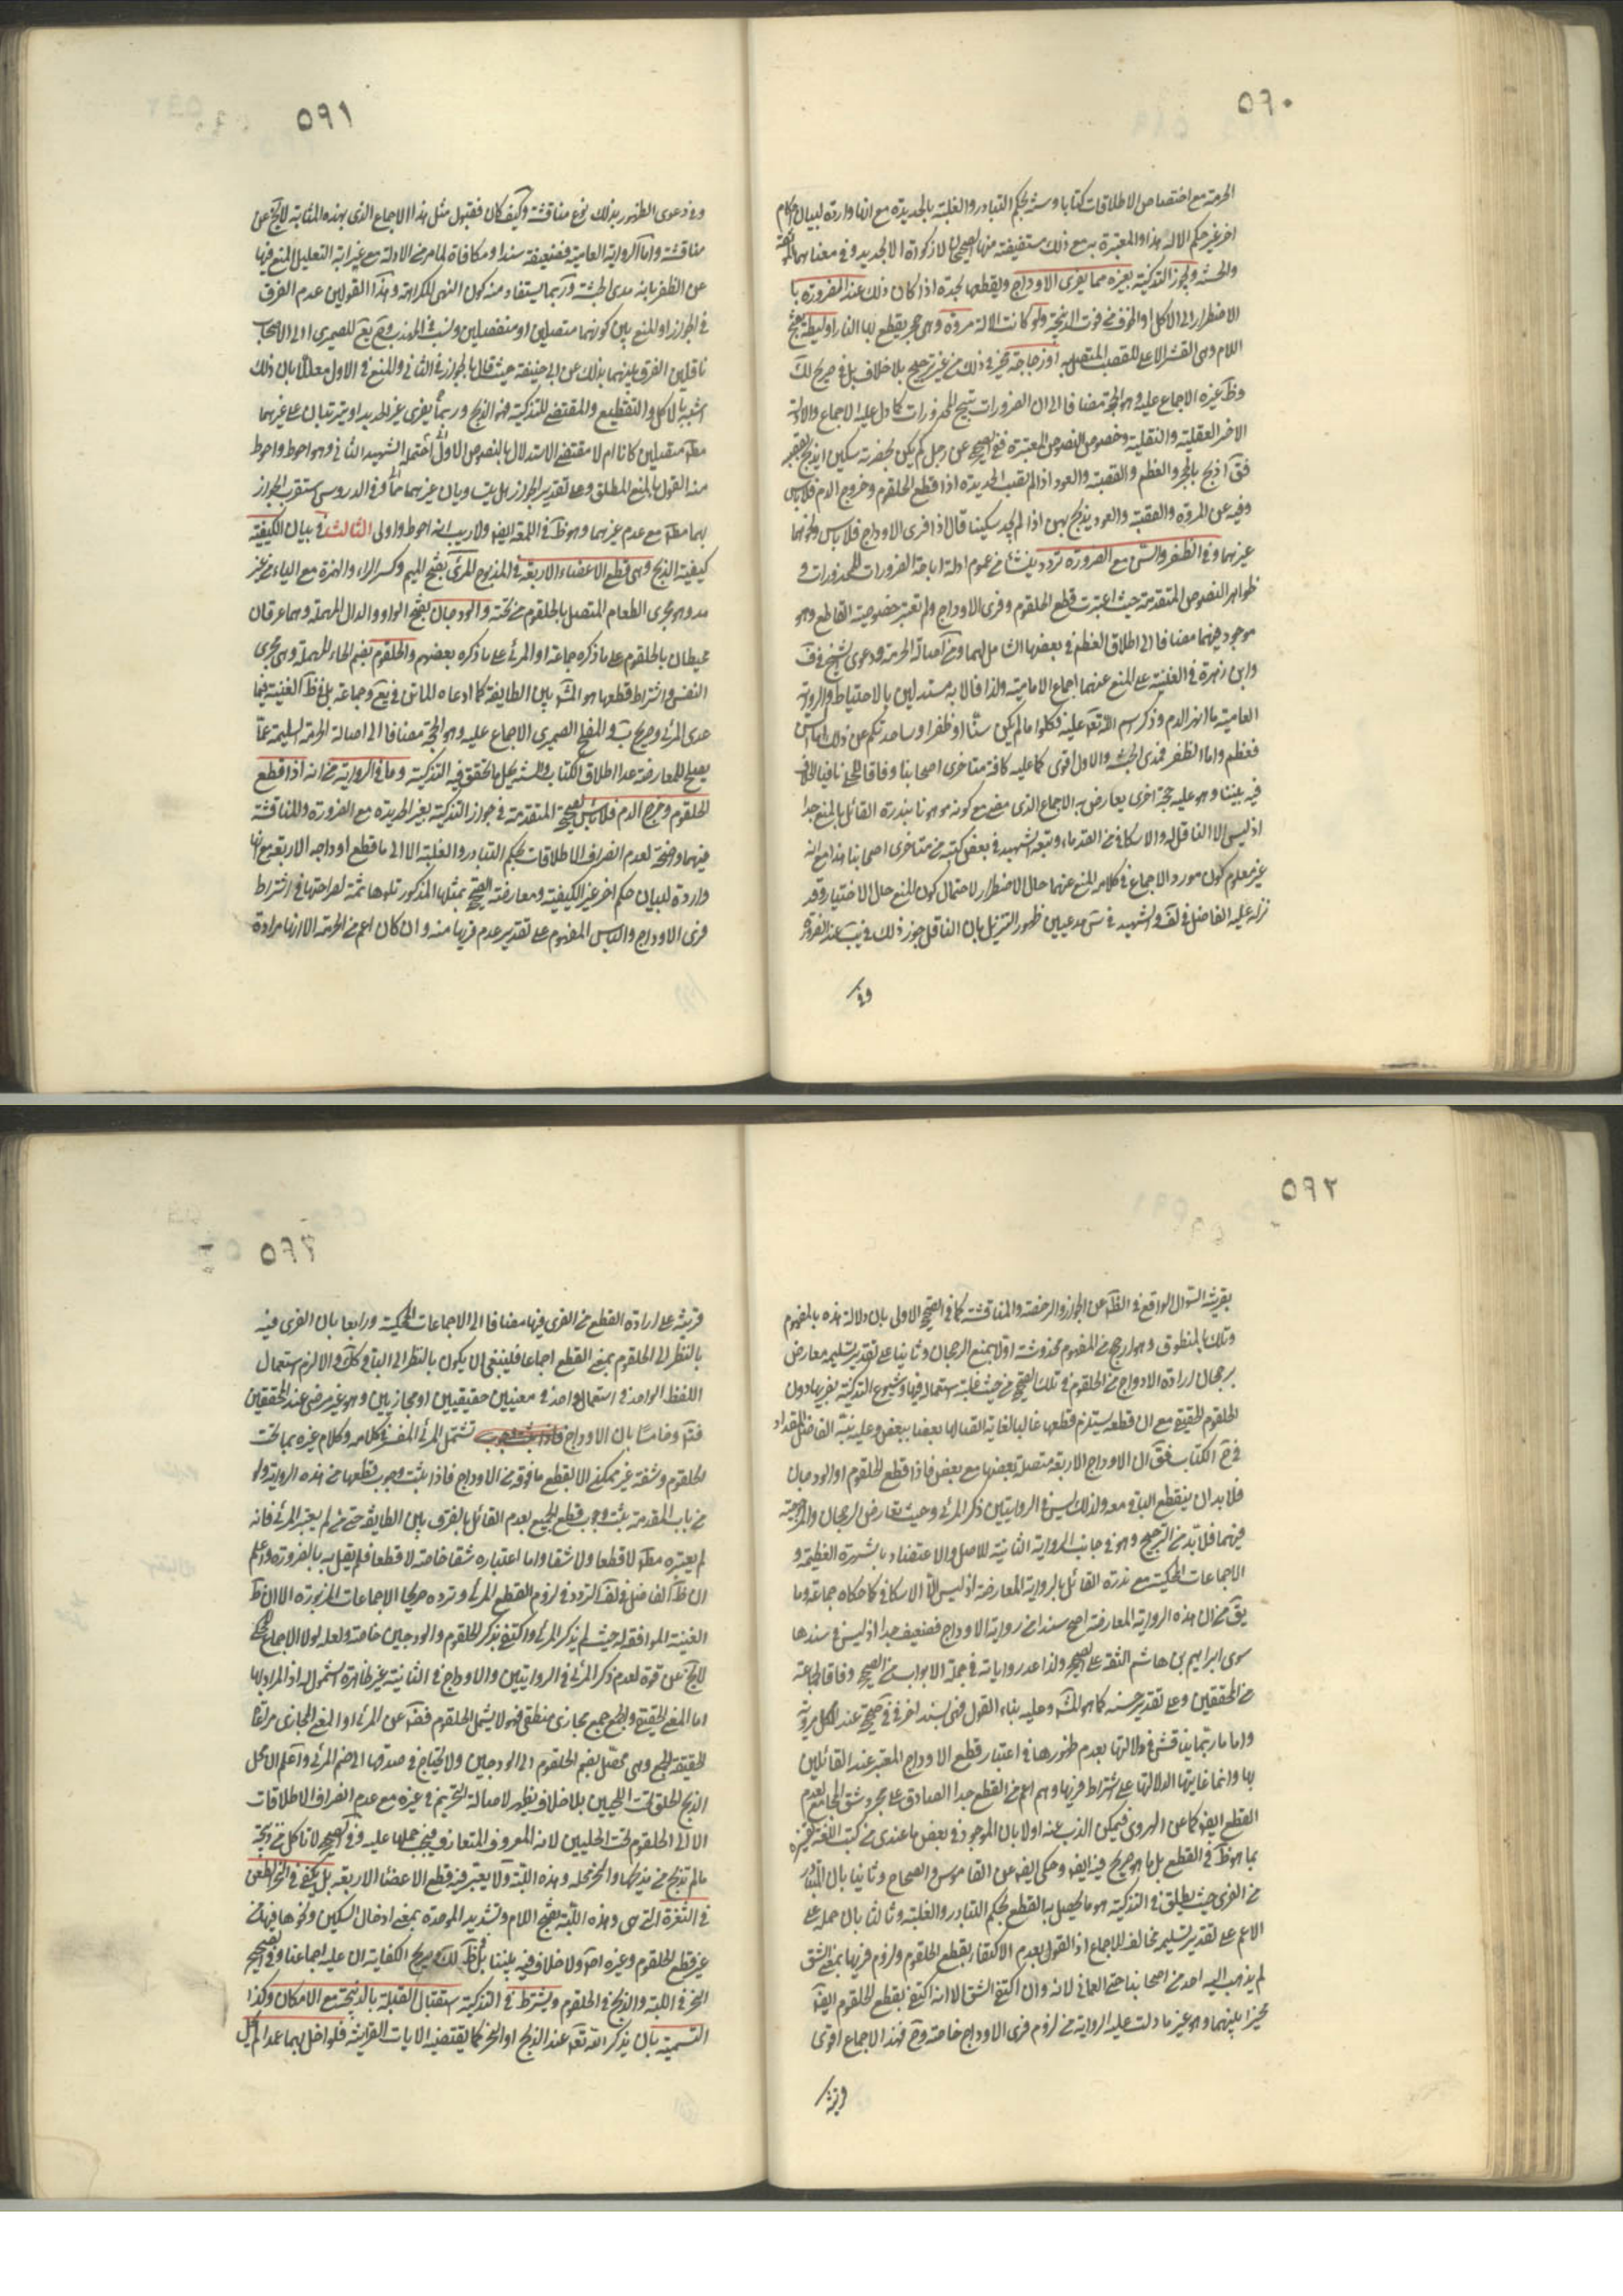 ٥٩٠
الحرمة مع اختصاص الاطلاقات كتابا وسنة بحكم التبادر والغلبة بالحديدة مع انها واردة لبيان احكام
اخر غير حكم الالة هذا والمعتبرة به مع ذلك مستفيضة منها الصحيحان لا ذكوة الا بحديدة وفي معناهما
والحسنة ويجوز التذكية بغيره مما يفرى الاوداج ويقطعها بحدة اذا كان ذلك عند الضرورة با
الاضطرار الى الاكل او الخوف من فوت الذبيحة ولو كانت الالة مروة وهى حجر يقطع بها النار او ليطة بفتح
اللام وهى القشر الاعلى للقصب المتصل به او زجاجة مخير في ذلك من غير ترجيح بلا خلاف بل في صريح لك
وظ غيره الاجماع عليه وهو الحجة مضافا الى ان الضرورات تبيح المحذورات كما دل عليه الاجماع والادلة
الاخر العقلية والنقلية وخصوص النصوص المعتبرة ففى الصحيح عن رجل لم يكن بحضرته سكين ايذبح بقصبة
فق اذبح بالحجر والعظم والقصبة والعود اذا لم تصب الحديدة اذا قطع الحلقوم وخروج الدم فلا باس
وفيه عن المروة والقصبة والعود يذبح بهن اذا لم يجد سكينا قال اذا فرى الاوداج فلا باس ونحوهما
غيرهما وفي الظفر والسن مع الضرورة تردد ينشأ من عموم ادلة اباحة الضرورات للمحذورات و
ظواهر النصوص المتقدمة حيث اعتبرت قطع الحلقوم وفرى الاوداج ولم تعتبر خصوصية القاطع وهو
موجود فيهما مضافا الى اطلاق العظم في بعضها الشامل لهما ومن اصالة الحرمة ودعوى الشيخ في ف
وابن زهرة في الغنية على المنع عنهما اجماع الامامية ولذا قالا به مستدلين بالاحتياط والرواية
العامية ما انهر الدم وذكر اسم الله تع عليه فكلوا ما لم يكن سنا او ظفرا وساحدثكم عن ذلك اما السن
فعظم واما الظفر فمدى الحبشة والاول اقوى كما عليه كافة متاخرى اصحابنا وفاقا للحلى نافيا الخلاف
فيه بيننا وهو عليه حجة اخرى يعارض به الاجماع الذى مضى مع كونه موهونا بندرة القائل بالمنع جدا
اذ ليس الا الناقل له والاسكافى من القدماء وتبعه الشهيد في بعض كتبه من متاخرى اصحابنا هذا مع انه
غير معلوم كون مورد الاجماع في كلامه المنع عنهما حال الاضطرار لاحتمال كون المنع حال الاختيار وقد
نزله عليه الفاضل في لف والشهيد في س مدعيين ظهور التنزيل بان الناقل جوز ذلك في يب عند الضرورة
وفي
٥٩١
وفي دعوى الظهور بذلك نوع مناقشة وكيف كان فقبول مثل هذا الاجماع الذى بهذه المثابة لا يخ عن
مناقشة واما الرواية العامية فضعيفة سندا ومكافاة لما مر من الادلة مع غيرانه التعليل للمنع فيها
عن الظفر بانه مدى الحبشة وربما يستفاد منه كون النهى للكراهة وهذا القولين عدم الفرق
في الجواز او المنع بين كونهما متصلين او منفصلين ونسبه في المهذب وشرح يع للصيمرى الى الاصحاب
ناقلين الفرق بينهما بذلك عن ابى حنيفة حيث قال بالجواز في الثانى والمنع في الاول معللا بان ذلك
اشبه بالاكل والتقطيع والمقتضى للتذكية هو الذبح وربما يفرى غير الحديد او يترتبان على غيرهما
مط متصلين كانا ام لا مقتضى الاستدلال بالنصوص الاول احتمله الشهيد الثانى وهو احوط واحوط
منه القول بالمنع المطلق وعلى تقدير الجواز هل يتساويان غيرهما مما مر في الدروس استقرب الجواز
بهما مط مع عدم غيرهما وهو ظ في اللمعة ايض ولا ريب انه احوط واولى الثالث في بيان الكيفية
كيفية الذبح وهى قطع الاعضاء الاربعة في المذبوح المرئ بفتح الميم وكسر الراء والهمزة مع الياء من غير
مد وهو مجرى الطعام المتصل بالحلقوم من تحته والودجان بفتح الواو والدال المهملة وهما عرقان
محيطان بالحلقوم على ما ذكره جماعة او المرئ على ما ذكره بعضهم والحلقوم بضم الحاء المهملة وهى مجرى
النفس واشتراط قطعها هو المش بين الطايفة كما ادعاه للماتن في يع وجماعة بل في ظ الغنية فيما
عدى المرئ وصريح ب والمفلح الصيمرى الاجماع عليه وهو الحجة مضافا الى اصالة الحرمة السليمة عما
يصلح للمعارضة عدا اطلاق الكتاب والسنة بحل ما يتحقق فيه التذكية وما في الرواية من انه اذا قطع
الحلقوم وخرج الدم فلا باس الصحيح المتقدمة في جواز التذكية بغير الحديدة مع الضرورة وللمناقشة
فيهما واضحة لعدم انصراف الاطلاقات بحكم التبادر والغلبة الا الى ما قطع اوداجه الاربعة مع انها
واردة لبيان حكم اخر غير الكيفية ومعارضة الصحيح بمثلها المذكور تلوها ثمة لصراحتها في اشتراط
فرى الاوداج والباس المفهوم على تقدير عدم فريها منه وان كان اعم من الحرمة الا انها مرادة
٥٩٢
بقرينة السؤال الواقع في الظ عن الجواز والرخصة والمناقشة كما في الصحيح الاولى بان دلالة هذه بالمفهوم
وتلك بالمنطوق وهو ارجح من المفهوم مخدوشة اولا بمنع الرجحان وثانيا على تقدير تسليمه معارض
برجحان ارادة الاوداج من الحلقوم في تلك الصحيح من حيث غلبة استعماله فيها وشيوع التذكية بفريها دون
الحلقوم الحقيقة مع ان قطعه يستلزم قطعها غالبا لغاية اتصالها بعضا ببعض وعليه نبه الفاضل المقداد
في شرح الكتاب فق ان الاوداج الاربعة متصلة بعضها مع بعض فاذا قطع الحلقوم او الودجان
فلا بد ان ينقطع الباقى معه ولذلك ليس في الروايتين ذكر المرئ وحيث تعارض الرجحان والمرجوحية
فيهما فلا بد من الترجيح وهو في جانب الرواية الثانية للاصل والاعتضاد بالشهرة العظيمة و
الاجماعات المحكية مع ندرة القائل بالرواية المعارضة اذ ليس الا الاسكافى كما حكاه جماعة وما
يق من ان هذه الرواية المعارضة اصح سندا من رواية الاوداج فضعيف جدا اذ ليس في سندها
سوى ابراهيم بن هاشم الثقة على الصحيح ولذا عد رواياته في جملة الابواب من الصحيح وفاقا لجماعة
من المحققين وعلى تقدير حسنه كما هو المش وعليه بناء القول فهى بسند اخر في في صحيحة عند الكل مروية
واما ما ربما يناقش في دلالتها بعدم ظهورها في اعتبار قطع الاوداج المعتبر عند القائلين
بها وانما غايتها الدلالة على اشتراط فريها وهم اعم من القطع جدا الصادق على مجرد شق الجامع لعدم
القطع ايض كما عن الهروى فيمكن الذب عنه اولا بان الموجود في بعض ما عندى من كتب اللغة تفسيره
بما هو ظ في القطع بل ما هو صريح فيه ايض وحكى ايض عن القاموس والصحاح وثانيا بان المتبادر
من الفرى حيث يطلق في التذكية هو ما يحصل بالقطع بحكم التبادر والغلبة وثالثا بان حمله على
الاعم على تقدير تسليمه مخالف للاجماع اذ القول بعدم الاكتفاء بقطع الحلقوم ولزوم فريها بمعنى الشق
لم يذهب اليه احد من اصحابنا حتى العمانى لانه وان اكتفى الشق الا انه اكتفى بقطع الحلقوم ايض
مخيرا بينهما وهو غير ما دلت عليه الرواية من لزوم فرى الاوداج خاصة وح فهذا الاجماع اقوى
قرينة
٥٩٣
قرينة على ارادة القطع من الفرى فيها مضافا الى الاجماعات المحكية ورابعا بان الفرى فيه
بالنظر الى الحلقوم بمعنى القطع اجماعا فلينبغى ان يكون بالنظر الى الباقى كك والا لزم استعمال
اللفظ الواحد في استعمال واحد في معنيين حقيقيين او مجازيين وهو غير مرضى عند المحققين
فتم وخامسا بان الاوداج تشتمل المرئ المفسر في كلامه وكلام غيره بما تحت
الحلقوم وشقه غير ممكن الا بقطع ما فوقه من الاوداج فاذا ثبت وجوب قطعها من هذه الرواية ولو
من باب المقدمة ثبت وجوب قطع الجميع لعدم القائل بالفرق بين الطايفة حتى من لم يعتبر المرئ فانه
لم يعتبره مط لا قطعا ولا شقا واما اعتباره شقا خاصة لا قطعا فلم يقل به بالضرورة واعلم
ان ظ الفاضل في لف التردد في لزوم القطع المرئ وترده صريحا الاجماعات المزبورة الا ان ظ
الغنية الموافقة له حيث لم يذكر المرئ واكتفى بذكر الحلقوم والودجين خاصة ولعله لولا الاجماع المحكى
لا يخ عن قوة لعدم ذكر المرئ في الروايتين والاوداج في الثانية غير ظاهرة الشمول له اذ المراد بها
اما المعنى الحقيقى والجمع جمع مجازى منطقى فهو لا يشمل الحلقوم فضلا عن المرئ او المعنى المجازى مراعا
لحقيقة الجمع وهى تحصل بضم الحلقوم الى الودجين ولا يحتاج في صدقها الى ضم المرئ واعلم ان محل
الذبح الحلق تحت اللحيين بلا خلاف يظهر لاصالة التحريم في غيره مع عدم انصراف الاطلاقات
الا الى الحلقوم تحت اللحيين لانه المعروف المتعارف فيجب حملها عليه وفي الصحيح لا تاكل من ذبيحة
ما لم تذبح من مذبحها والنحر محله وهذه اللبة ولا يعتبر فيه قطع الاعضاء الاربعة بل يكفى في النحر الطعن
في الثغرة التى هى وهذه اللبة بفتح اللام وتشديد الموحدة بمعنى ادخال السكين ونحوها فيها من
غير قطع الحلقوم وغيره اص ولا خلاف فيه بيننا بل ظ لك وصريح الكفاية ان عليه اجماعنا وفي الصحيح
النحر في اللبة والذبح في الحلقوم ويشترط في التذكية استقبال القبلة بالذبيحة مع الامكان وكذا
التسمية بان يذكر الله تع عند الذبح او النحر كما يقتضيه الايات القرانية فلو اخل بهما عمدا لم يحل